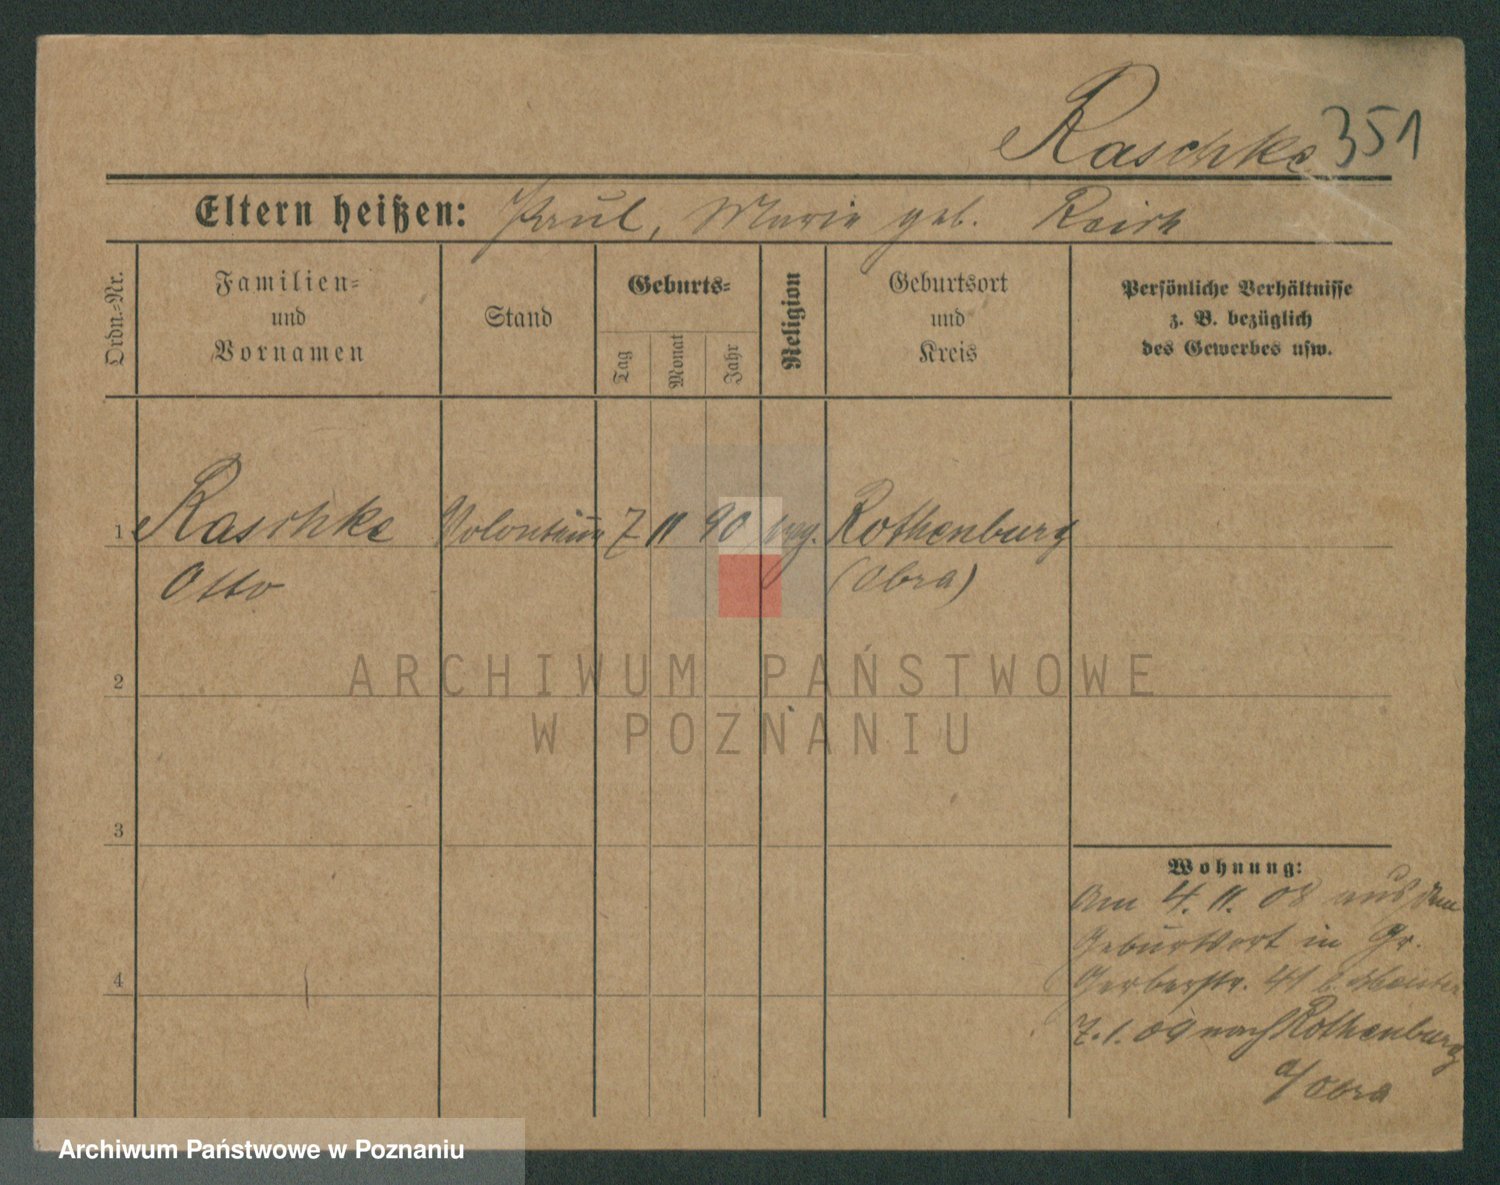 Raschke 351
Eltern heißen: Paul, Marie geb. Reich
Ordn.-Nr.
Familien-
und
Vornamen
Stand
Geburts-
Tag
Monat
Jahr
Religion
Geburtsort
und
Kreis
Persönliche Verhältnisse
z. B. bezüglich
des Gewerbes usw.
1 Raschke 7 11 90 Rothenburg
Otto (Obra)
2
ARCHIWUM PAŃSTWOWE
W POZNANIU
3
Wohnung:
Am 4. 11. 08 aus dem
Geburtsort in Gr.
4
Gerberstr. 41 b.
7. 1. 09 nach Rothenburg
a/Obra
Archiwum Państwowe w Poznaniu